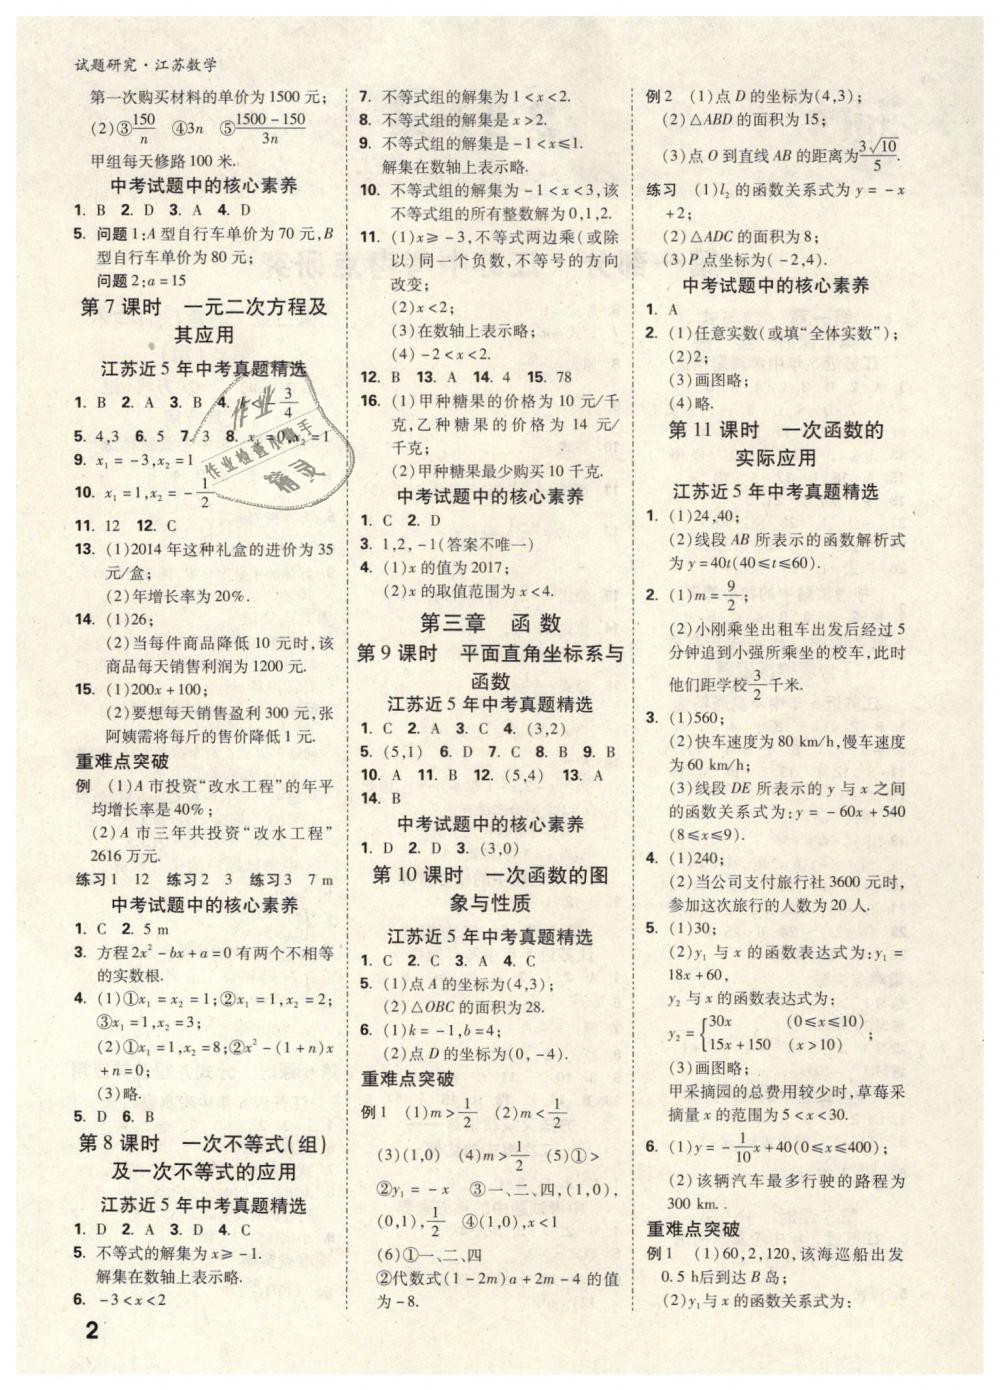 试题研究·江苏数学
第一次购买材料的单价为1500元;
(2)③150/n ④3n ⑤(1500-150)/3n
甲组每天修路100米.
中考试题中的核心素养
1. B 2. D 3. A 4. D
5. 问题1:A型自行车单价为70元,B
型自行车单价为80元;
问题2:a=15
第7课时 一元二次方程及
其应用
江苏近5年中考真题精选
1. B 2. A 3. B 4. k<-3/4
5. 4,3 6. 5 7. 3 8. x₁=0,x₂=1
9. x₁=-3,x₂=1
10. x₁=1,x₂=-1/2
11. 12 12. C
13. (1)2014年这种礼盒的进价为35
元/盒;
(2)年增长率为20%.
14. (1)26;
(2)当每件商品降低10元时,该
商品每天销售利润为1200元.
15. (1)200x+100;
(2)要想每天销售盈利300元,张
阿姨需将每斤的售价降低1元.
重难点突破
例 (1)A市投资“改水工程”的年平
均增长率是40%;
(2)A市三年共投资“改水工程”
2616万元.
练习1 12 练习2 3 练习3 7 m
中考试题中的核心素养
1. C 2. 5 m
3. 方程2x²-bx+a=0有两个不相等
的实数根.
4. (1)①x₁=x₂=1;②x₁=1,x₂=2;
③x₁=1,x₂=3;
(2)①x₁=1,x₂=8;②x²-(1+n)x
+n=0;
(3)略.
5. D 6. B
第8课时 一次不等式(组)
及一次不等式的应用
江苏近5年中考真题精选
1. D 2. A 3. D 4. C
5. 不等式的解集为x≥-1.
解集在数轴上表示略.
6. -3<x<2
7. 不等式组的解集为1<x<2.
8. 不等式组的解集是x>2.
9. 不等式组的解集是-1<x≤1.
解集在数轴上表示略.
10. 不等式组的解集为-1<x<3,该
不等式组的所有整数解为0,1,2.
11. (1)x≥-3,不等式两边乘(或除
以)同一个负数,不等号的方向
改变;
(2)x<2;
(3)在数轴上表示略;
(4)-2<x<2.
12. B 13. A 14. 4 15. 78
16. (1)甲种糖果的价格为10元/千
克,乙种糖果的价格为14元/
千克;
(2)甲种糖果最少购买10千克.
中考试题中的核心素养
1. C 2. D
3. 1,2,-1(答案不唯一)
4. (1)x的值为2017;
(2)x的取值范围为x<4.
第三章 函数
第9课时 平面直角坐标系与
函数
江苏近5年中考真题精选
1. C 2. A 3. C 4. (3,2)
5. (5,1) 6. D 7. C 8. B 9. B
10. A 11. B 12. (5,4) 13. A
14. B
中考试题中的核心素养
1. D 2. D 3. (3,0)
第10课时 一次函数的图
象与性质
江苏近5年中考真题精选
1. C 2. C 3. A 4. C
5. (1)点A的坐标为(4,3);
(2)△OBC的面积为28.
6. (1)k=-1,b=4;
(2)点D的坐标为(0,-4).
重难点突破
例1 (1)m>1/2 (2)m<1/2
(3)(1,0) (4)m>1/2 (5)①>
②y₁=-x ③一、二、四,(1,0),
(0,1),1/2 ④(1,0),x<1
(6)①一、二、四
②代数式(1-2m)a+2m-4的值
为-8.
例2 (1)点D的坐标为(4,3);
(2)△ABD的面积为15;
(3)点O到直线AB的距离为3√10/5.
练习 (1)l₂的函数关系式为y=-x
+2;
(2)△ADC的面积为8;
(3)P点坐标为(-2,4).
中考试题中的核心素养
1. A
2. (1)任意实数(或填“全体实数”);
(2)2;
(3)画图略;
(4)略.
第11课时 一次函数的
实际应用
江苏近5年中考真题精选
1. (1)24,40;
(2)线段AB所表示的函数解析式
为y=40t(40≤t≤60).
2. (1)m=9/2;
(2)小刚乘坐出租车出发后经过5
分钟追到小强所乘坐的校车,此时
他们距学校3/2千米.
3. (1)560;
(2)快车速度为80 km/h,慢车速度
为60 km/h;
(3)线段DE所表示的y与x之间
的函数关系式为:y=-60x+540
(8≤x≤9).
4. (1)240;
(2)当公司支付旅行社3600元时,
参加这次旅行的人数为20人.
5. (1)30;
(2)y₁与x的函数表达式为:y₁=
18x+60,
y₂与x的函数表达式为:
y₂={30x (0≤x≤10)
15x+150 (x>10);
(3)画图略;
甲采摘园的总费用较少时,草莓采
摘量x的范围为5<x<30.
6. (1)y=-1/10x+40(0≤x≤400);
(2)该辆汽车最多行驶的路程为
300 km.
重难点突破
例1 (1)60,2,120,该海巡船出发
0.5 h后到达B岛;
(2)y₁与x的函数关系式为:
2
作业
作业检查小助手
精灵